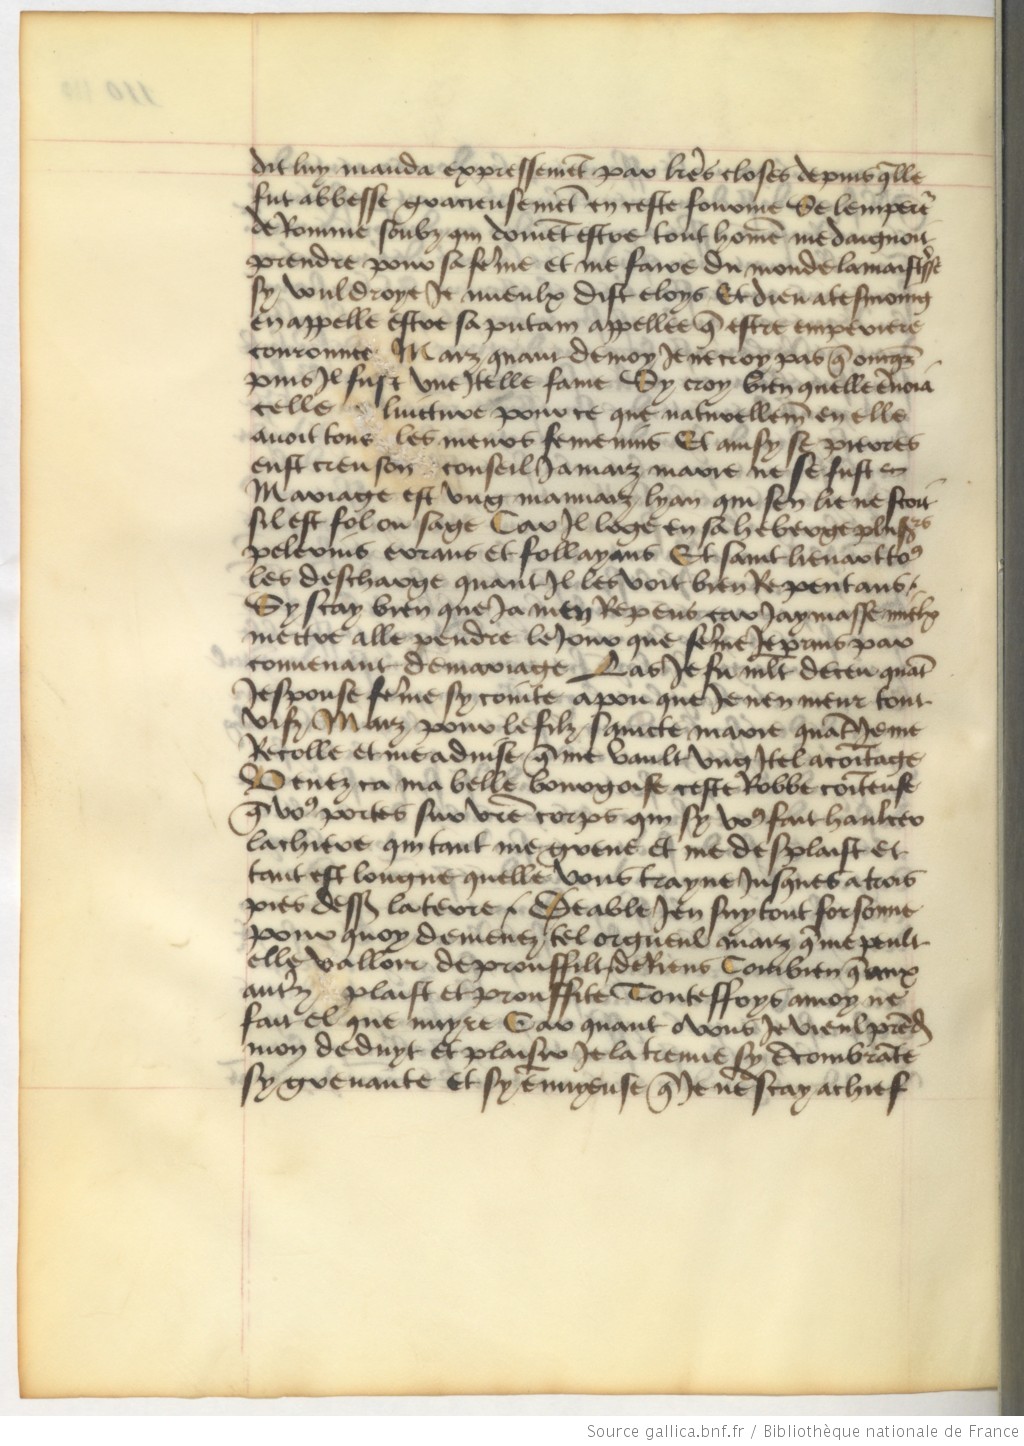 dit luy manda expressemēt par lrēs closes depuis q̄lle
fut abbesse gracieusemēt en ceste fourme Se lemperẽ
de Romme soubz qui doiuēt estre tout homē me daignoit
prendre pour sa fēme et me faire du monde la maistsse
sy vouldroye Je mieulx dist eloys Et dieu a tesmoing
en appelle estre sa putain appellee q̄ estre emperiere
couronnee Marz quant de moy Je ne croy pas q̄ oncqz
puis Jl fust vne Jtelle fame Sy croy bien quelle
celle lincture pour ce que naturellemē en elle
auoit tous les meurs femenins Et ainsy se pierres
eust creu son conseil Jamaiz marie ne se fust
Mariage est vng mauuaiz lyan qui sen lie ne scoit
sil est fol ou sage Car Jl loge en sa heberge plus̄rs
pelerins erans et follayans Et saint lienart to9
les descharge quant Jl les voit bien Repentans
Sy scay bien que Ja men Repens car Jaymasse mielx
mettre alle pendre le Jour que fēme Je prins par
conuenant de mariage Las Je fu mlt deceu quāt
Jespouse fēme sy cointe a pou que Je nen meur tout
vifz Marz pour le filz saincte marie quāt Je me
Recolle et me aduise q̄ me vault vng Jtel acoītage
Venez ca ma belle bourgoise ceste Robbe coīteuse
q̄ vo9 portes sur vrē corps qui sy vo9 fait haulcer
la chiere qui tant me griene et me desplaist et
tant est longue quelle vous trayne Jusques a trois
pies dess9 la terre Deable Jen suy tout forsonne
pour quoy demenez tel orgueul maiz q̄ me peult
elle valloir de prouffilt de Riens Combien q̄ aux
autrz plaist et prouffite Touteffoys a moy ne
fait el que nuyre Car quant o vous Je vieul prēdre
mon deduyt et plaisir Je la treuue sy ēcombrāte
sy greuante et sy ēnuyeuse q̄ Je ne scay a chief